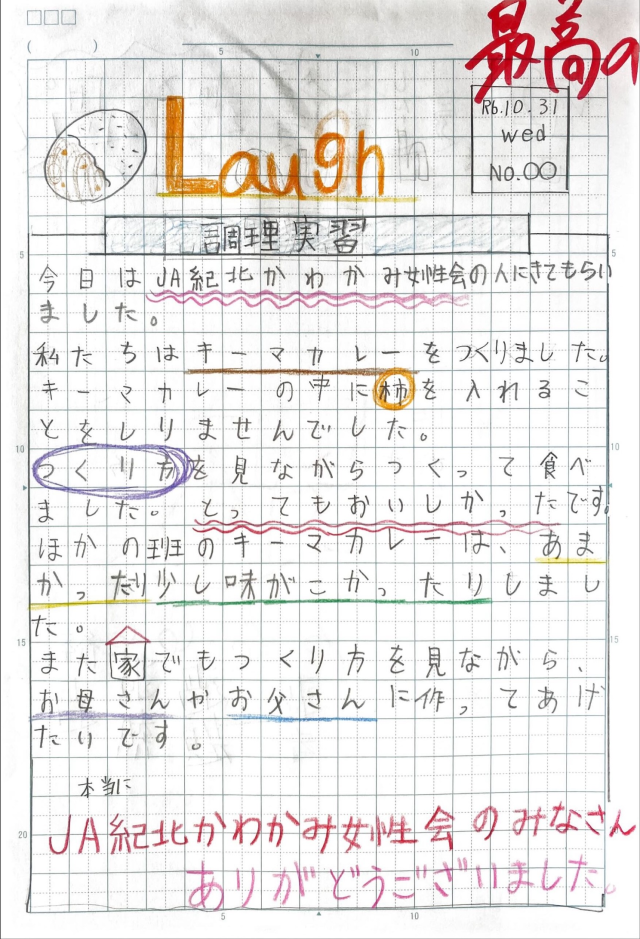 最高の
R6.10.31
wed
No.〇〇
Laugh
調理実習
今日はJA紀北かわかみ女性会の人にきてもらい
ました。
私たちはキーマカレーをつくりました。
キーマカレーの中に柿を入れるこ
とをしりませんでした。
つくり方を見ながらつくって食べ
ました。とってもおいしかったです。
ほかの班のキーマカレーは、あま
かったり少し味がこかったりしまし
た。
また家でもつくり方を見ながら、
お母さんやお父さんに作ってあげ
たいです。
本当に
JA紀北かわかみ女性会のみなさん
ありがどうございました。